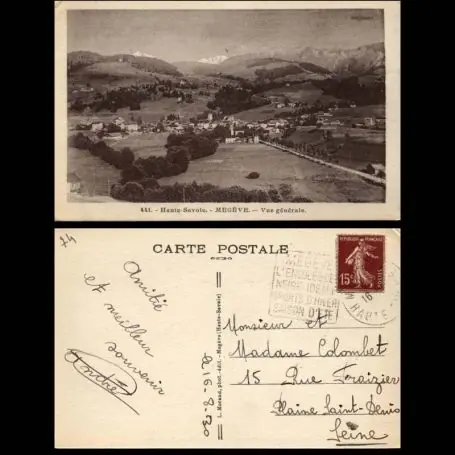 441. - Haute-Savoie. - MEGÈVE. - Vue générale.
74
CARTE POSTALE
Amitié
et meilleur
souvenir
André
L. Morand, phot.-édit. - Megève (Haute-Savoie)
16-8-30
MEGÈVE
L'ENSOLEILLÉE
NEIGE IDÉALE
SPORTS D'HIVER
SAISON D'ÉTÉ
16
HAUTE
REPUBLIQUE FRANÇAISE
15c
POSTES
Monsieur et
Madame Colombet
15 Rue Fraizier
Plaine Saint-Denis
Seine